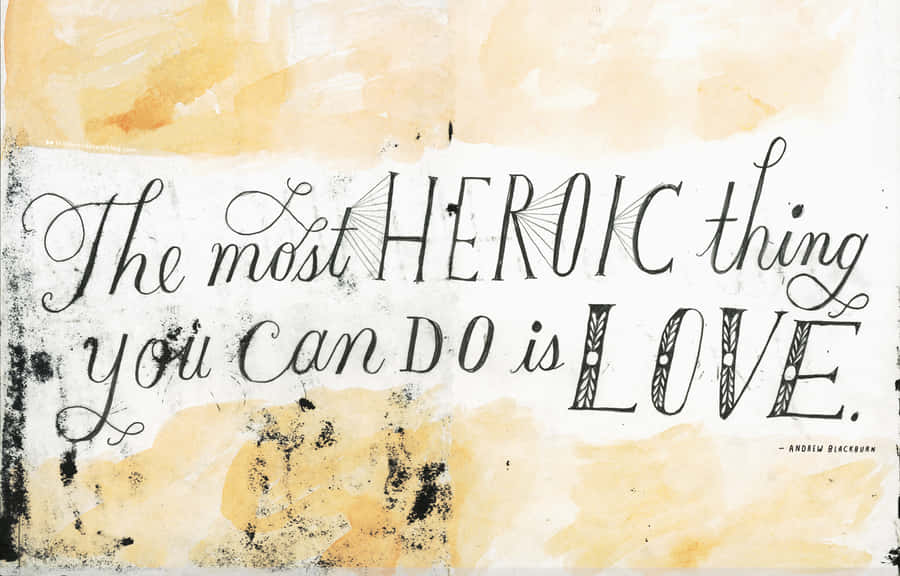 The most HEROIC thing
you Can DO is LOVE.
— ANDREW BLACKBURN